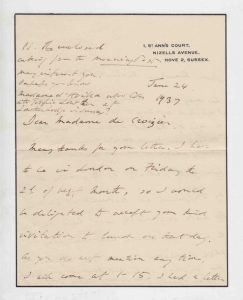 1, ST ANN'S COURT,
NIZELLS AVENUE,
HOVE 2, SUSSEX.
P.S. The enclosed
cutting from the
may interest you
Madame d'
June 24
1937
Dear Madame de Croizier
Many thanks for your letter. I hope
to be in London on Friday the
2 of next month, so I would
be delighted to accept your kind
invitation to lunch on that day.
As you do not mention any time
I will come at 1.15. I had a letter